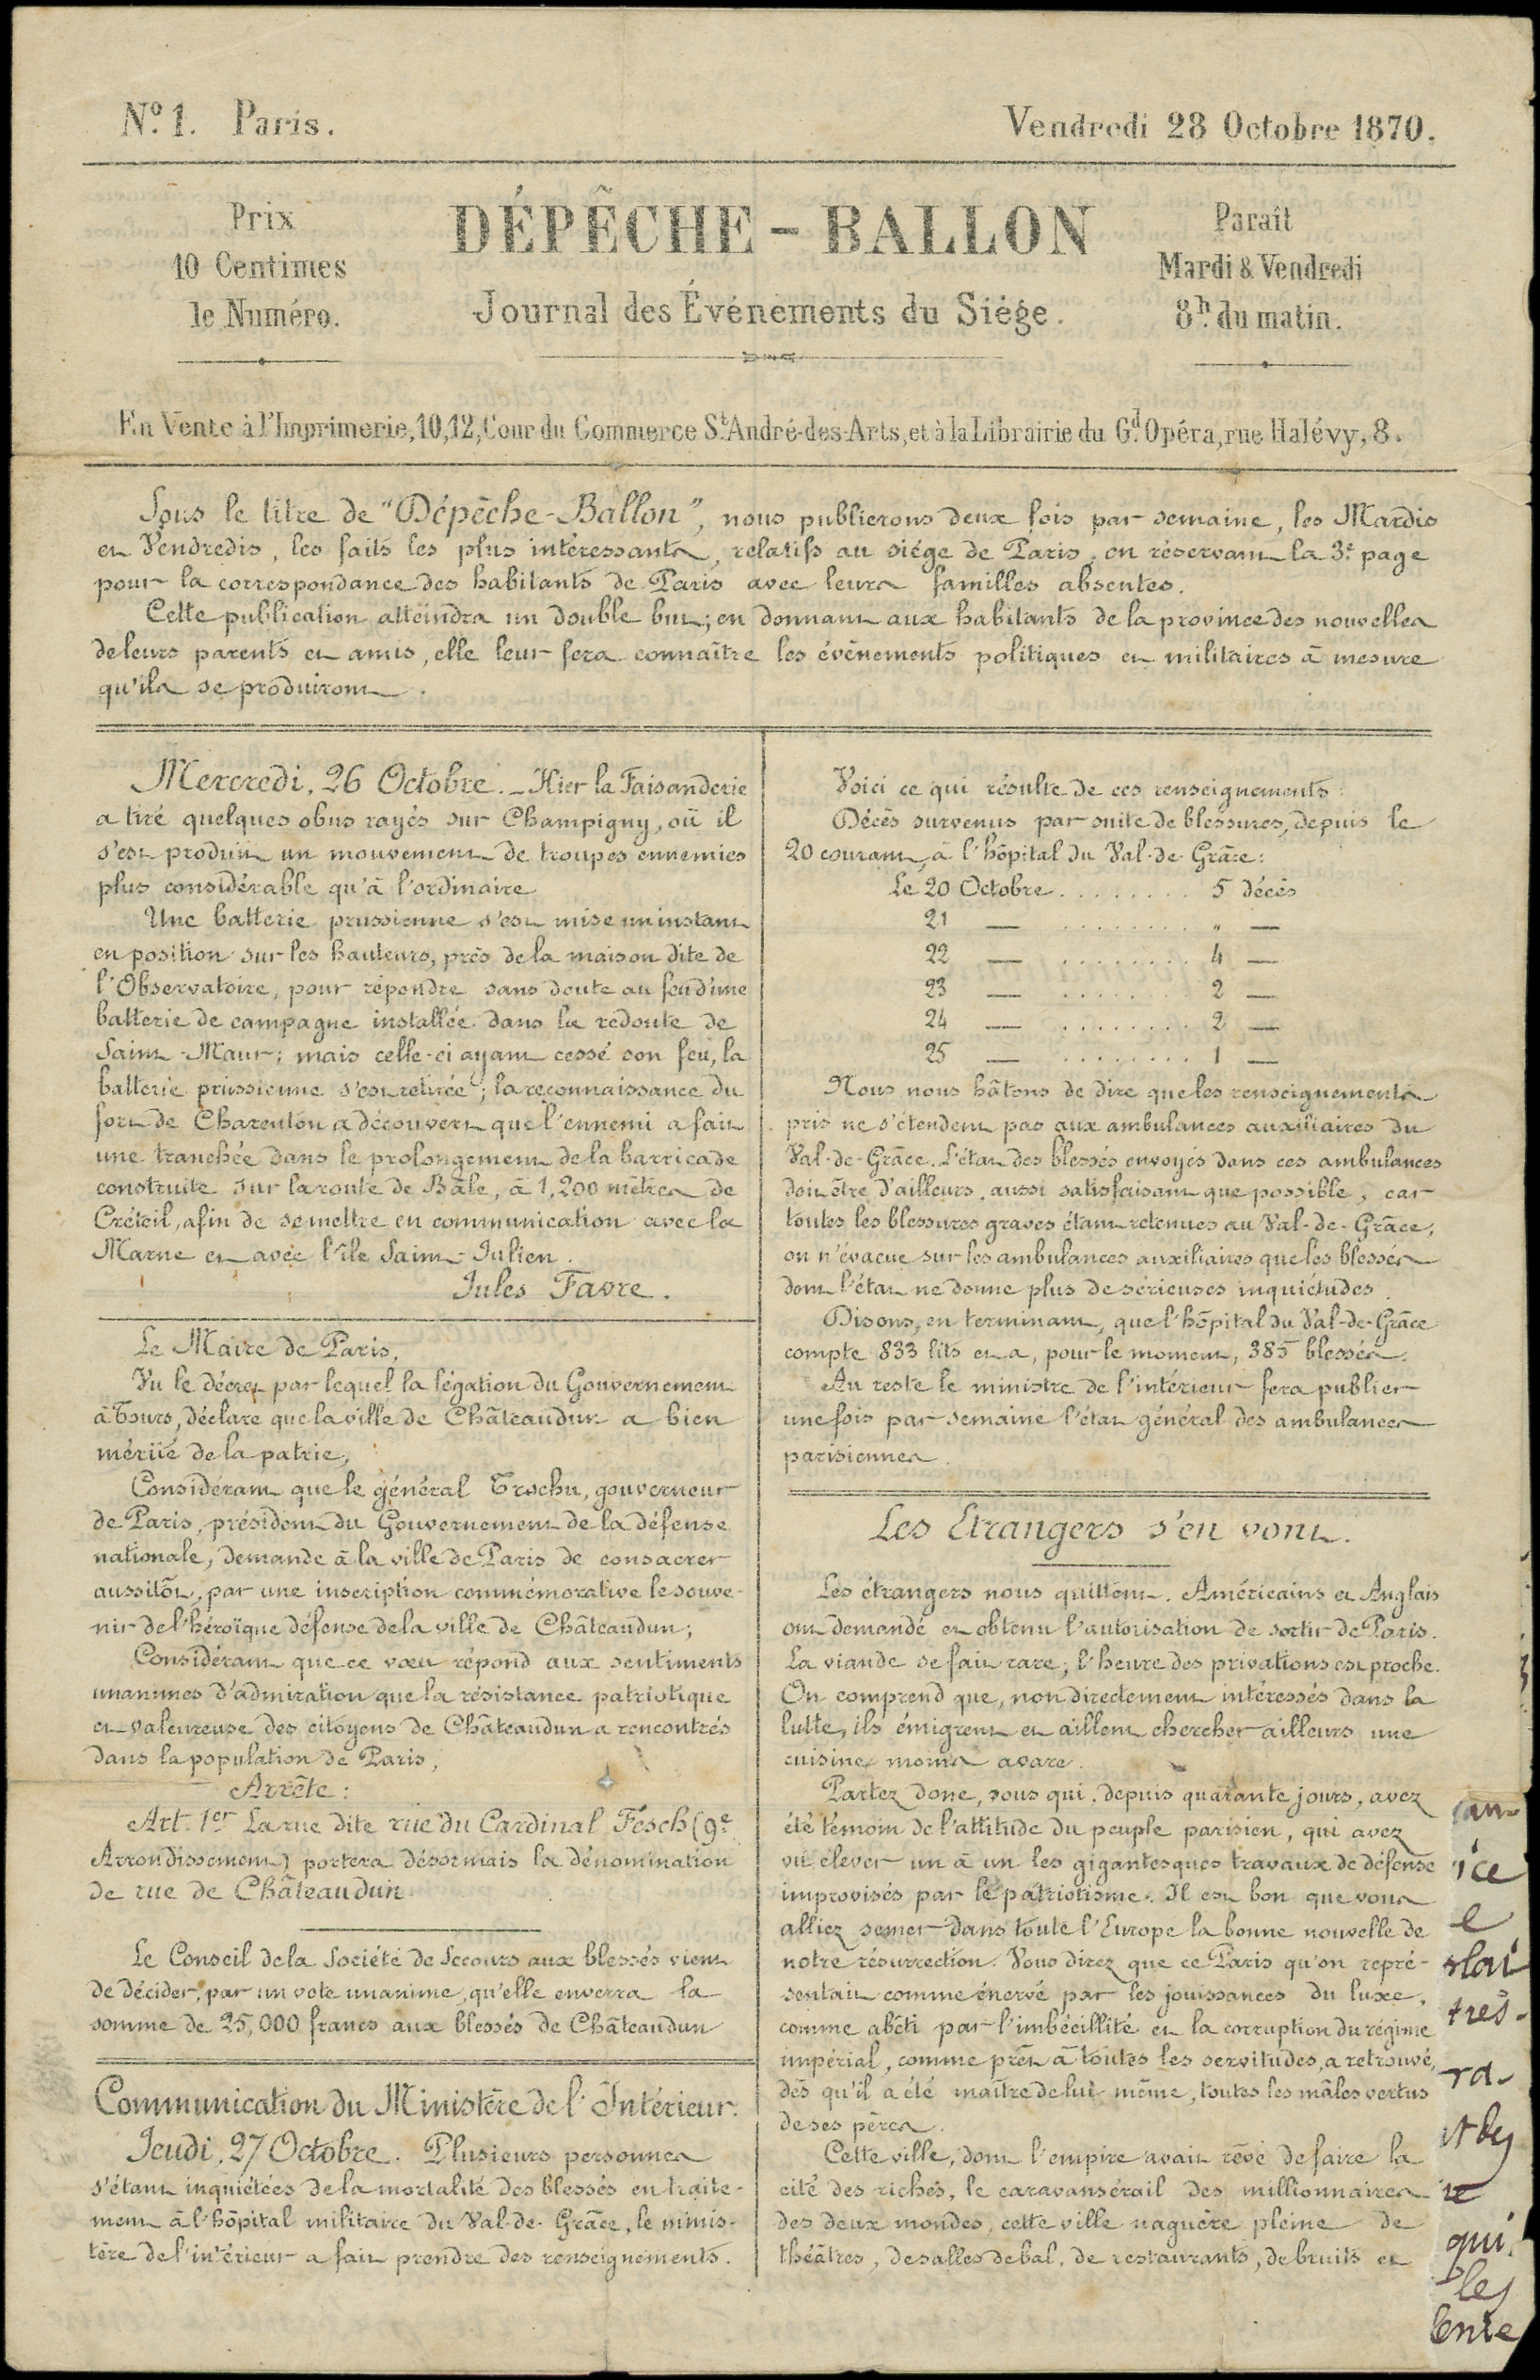 N.º 1. Paris.
Vendredi 28 Octobre 1870.
Prix
10 Centimes
le Numéro.
DÉPÊCHE - BALLON
Journal des Événements du Siége.
Paraît
Mardi & Vendredi
8h. du matin.
En Vente à l'Imprimerie, 10, 12, Cour du Commerce St. André-des-Arts, et à la Librairie du Gd. Opéra, rue Halévy, 8.
Sous le titre de "Dépêche-Ballon", nous publierons deux fois par semaine, les Mardis
et Vendredis, les faits les plus intéressants, relatifs au siége de Paris, en réservant la 3e. page
pour la correspondance des habitants de Paris avec leurs familles absentes.
Cette publication atteindra un double but; en donnant aux habitants de la province des nouvelles
de leurs parents et amis, elle leur fera connaître les événements politiques et militaires à mesure
qu'ils se produiront.
Mercredi, 26 Octobre. _ Hier la Faisanderie
a tiré quelques obus rayés sur Champigny, où il
s'est produit un mouvement de troupes ennemies
plus considérable qu'à l'ordinaire
Une batterie prussienne s'est mise un instant
en position sur les hauteurs, près de la maison dite de
l'Observatoire, pour répondre sans doute au feu d'une
batterie de campagne installée dans la redoute de
Saint-Maur; mais celle-ci ayant cessé son feu, la
batterie prussienne s'est retirée; la reconnaissance du
fort de Charenton a découvert que l'ennemi a fait
une tranchée dans le prolongement de la barricade
construite sur la route de Bâle, à 1,200 mètres de
Créteil, afin de se mettre en communication avec la
Marne et avec l'île Saint-Julien.
Jules Favre.
Le Maire de Paris,
Vu le décret par lequel la légation du Gouvernement
à Tours, déclare que la ville de Châteaudun a bien
mérité de la patrie,
Considérant que le général Trochu, gouverneur
de Paris, président du Gouvernement de la défense
nationale, demande à la ville de Paris de consacrer
aussitôt, par une inscription commémorative le souve-
nir de l'héroïque défense de la ville de Châteaudun;
Considérant que ce vœu répond aux sentiments
unanimes d'admiration que la résistance patriotique
et valeureuse des citoyens de Châteaudun a rencontrés
dans la population de Paris,
Arrête:
Art. 1er La rue dite rue du Cardinal Fesch (9e.
Arrondissement) portera désormais la dénomination
de rue de Châteaudun.
Le Conseil de la Société de Secours aux blessés vient
de décider, par un vote unanime, qu'elle enverra la
somme de 25,000 francs aux blessés de Châteaudun
Communication du Ministère de l'Intérieur.
Jeudi, 27 Octobre. Plusieurs personnes
s'étant inquiétées de la mortalité des blessés en traite-
ment à l'hôpital militaire du Val-de-Grâce, le minis-
tère de l'intérieur a fait prendre des renseignements.
Voici ce qui résulte de ces renseignements:
Décès survenus par suite de blessures, depuis le
20 courant, à l'hôpital du Val-de-Grâce:
Le 20 Octobre ........ 5 décès
21 — ........ „ —
22 — ........ 4 —
23 — ........ 2 —
24 — ........ 2 —
25 — ........ 1 —
Nous nous hâtons de dire que les renseignements
pris ne s'étendent pas aux ambulances auxiliaires du
Val-de-Grâce. L'état des blessés envoyés dans ces ambulances
doit être d'ailleurs, aussi satisfaisant que possible, car
toutes les blessures graves étant retenues au Val-de-Grâce,
on n'évacue sur les ambulances auxiliaires que les blessés
dont l'état ne donne plus de sérieuses inquiétudes.
Disons, en terminant, que l'hôpital du Val-de-Grâce
compte 833 lits et a, pour le moment, 385 blessés.
Au reste le ministre de l'intérieur fera publier
une fois par semaine l'état général des ambulances
parisiennes.
Les Etrangers s'en vont.
Les étrangers nous quittent. Américains et Anglais
ont demandé et obtenu l'autorisation de sortir de Paris.
La viande se fait rare; l'heure des privations est proche.
On comprend que, non directement intéressés dans la
lutte, ils émigrent et aillent chercher ailleurs une
cuisine moins avare.
Partez donc, vous qui, depuis quarante jours, avez
été témoin de l'attitude du peuple parisien, qui avez
vu élever un à un les gigantesques travaux de défense
improvisés par le patriotisme. Il est bon que vous
alliez semer dans toute l'Europe la bonne nouvelle de
notre résurrection. Vous direz que ce Paris qu'on repré-
sentait comme énervé par les jouissances du luxe,
comme abêti par l'imbécillité et la corruption du régime
impérial, comme prêt à toutes les servitudes, a retrouvé,
dès qu'il a été maître de lui-même, toutes les mâles vertus
de ses pères.
Cette ville, dont l'empire avait rêvé de faire la
cité des riches, le caravansérail des millionnaires
des deux mondes, cette ville naguère pleine de
théâtres, de salles de bal, de restaurants, de bruits et
ice
e
très-
qui
les